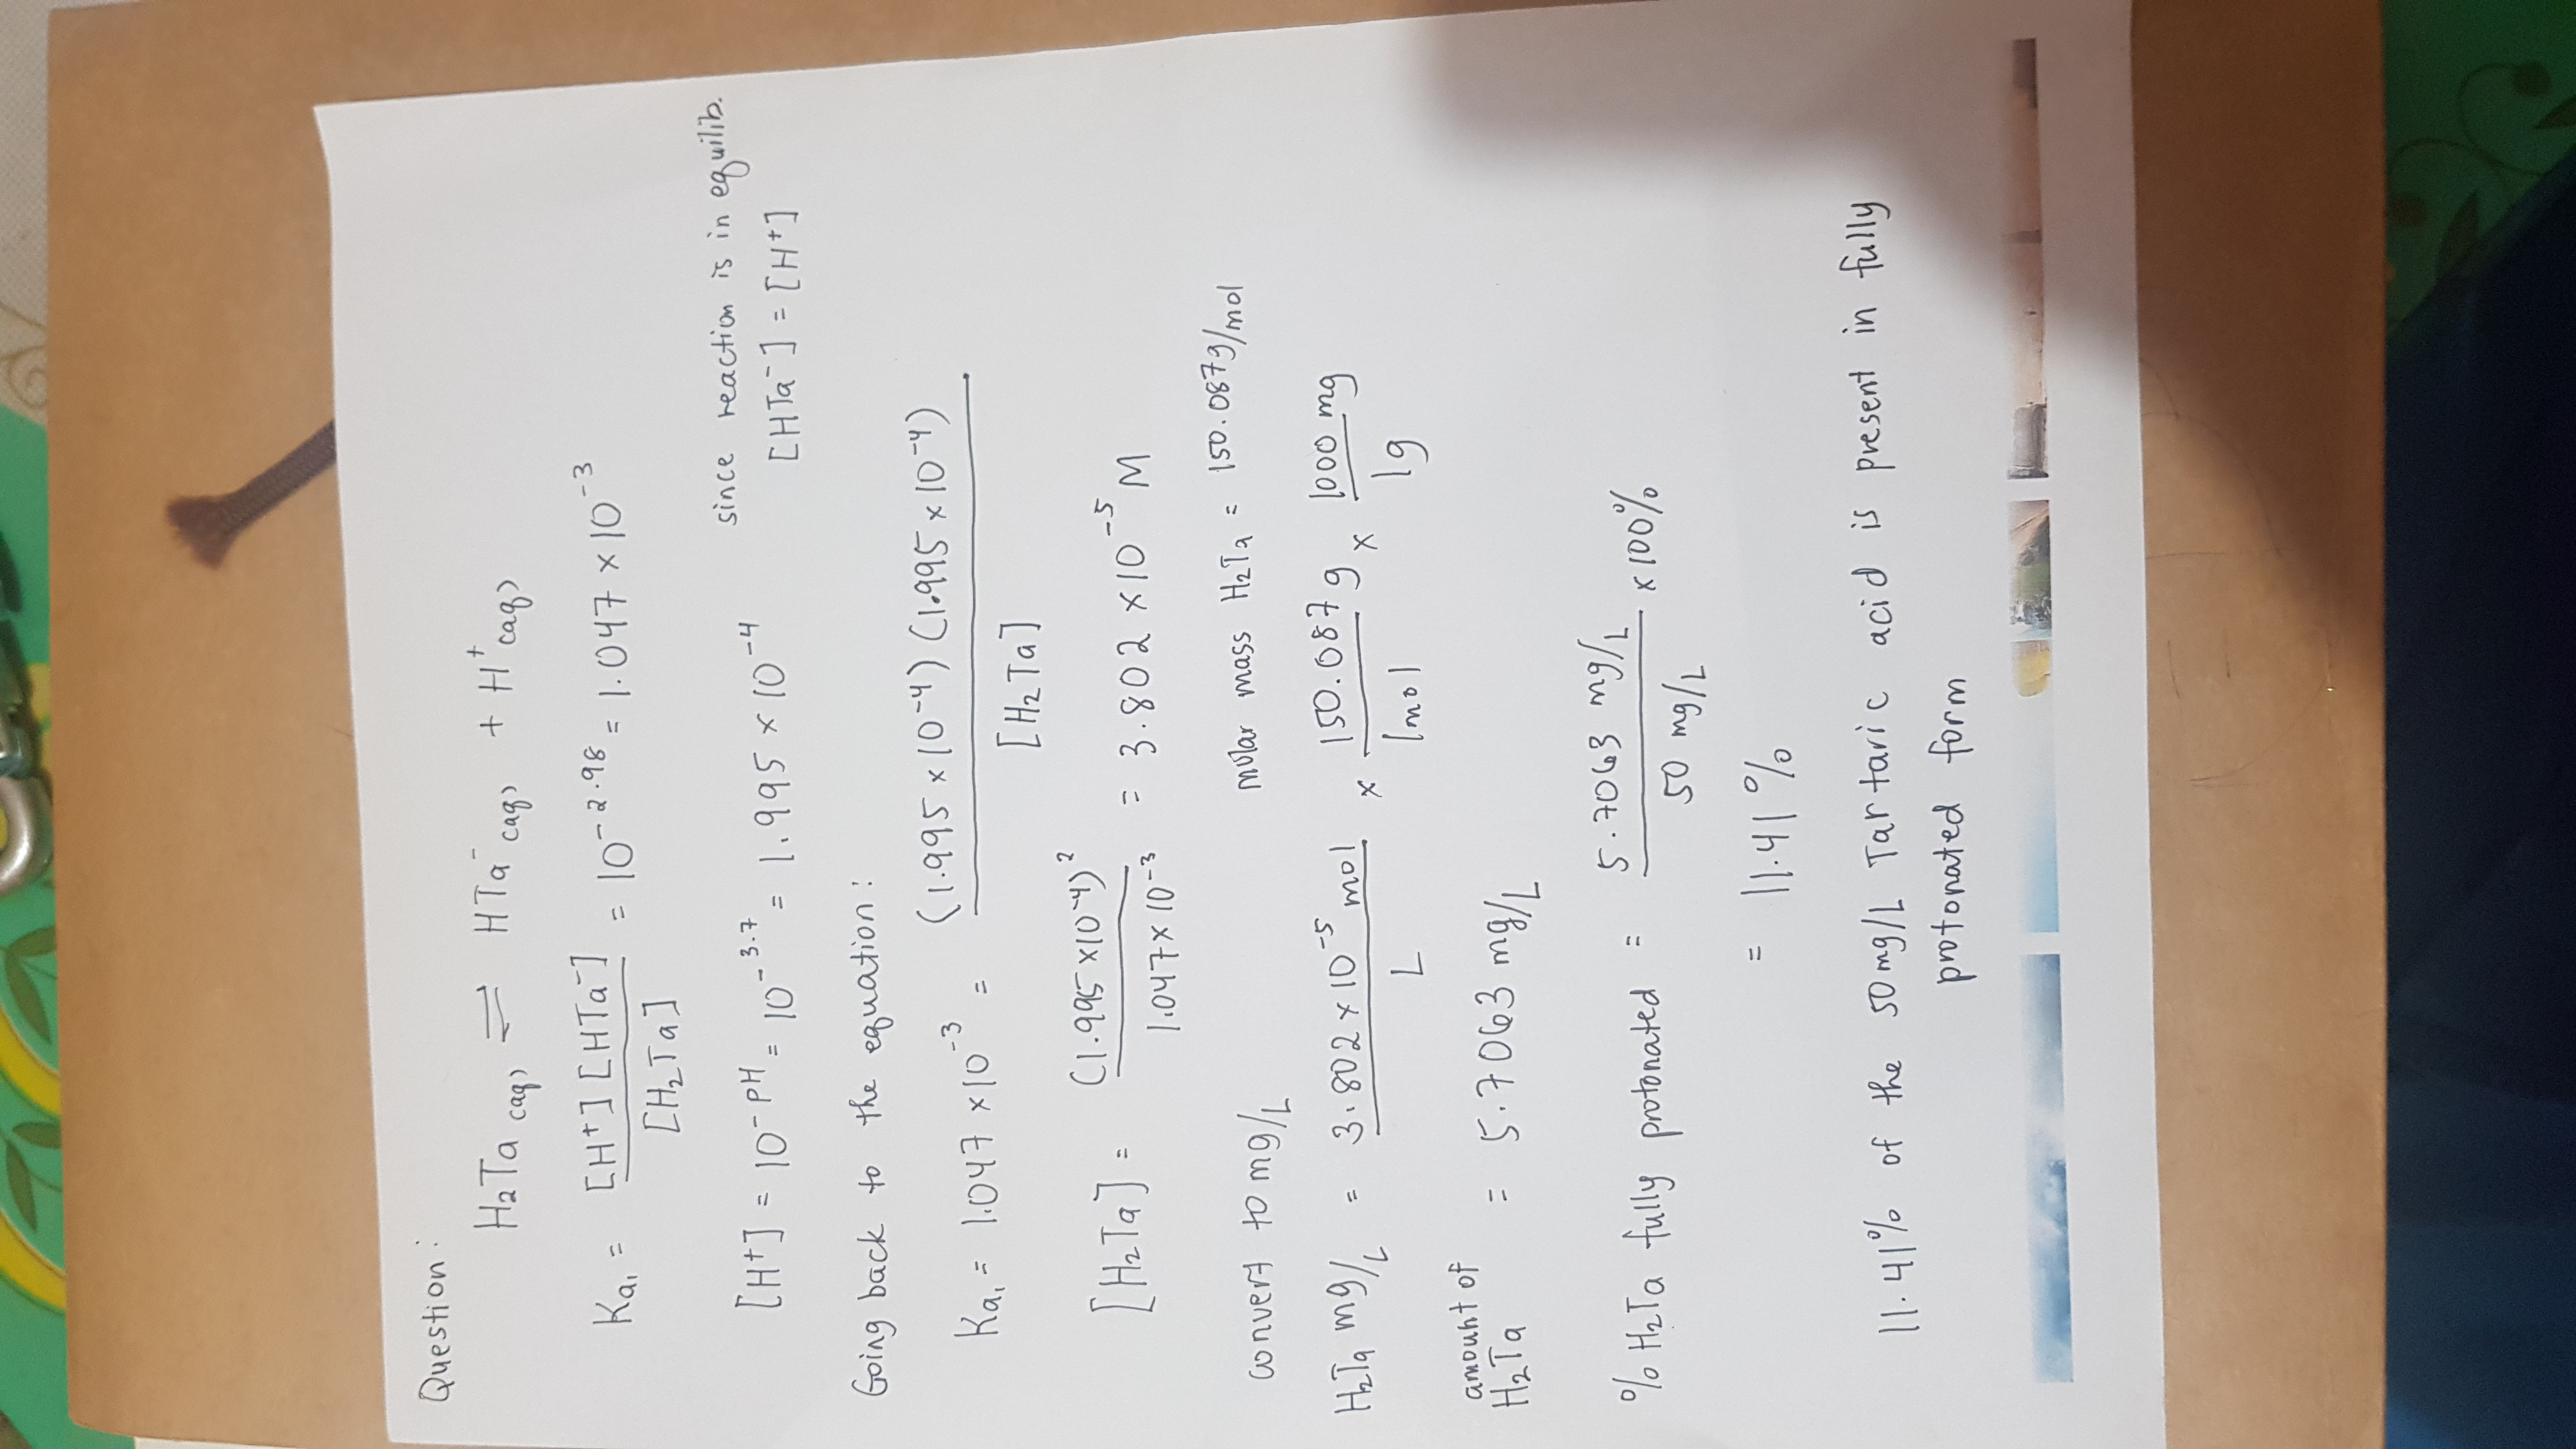 Question:
H₂Ta (aq) ⇌ HTa⁻ (aq) + H⁺ (aq)
Ka₁ = [H⁺][HTa⁻] / [H₂Ta] = 10⁻²·⁹⁸ = 1.047 × 10⁻³
since reaction is in equilib.
[H⁺] = 10⁻ᵖᴴ = 10⁻³·⁷ = 1.995 × 10⁻⁴ [HTa⁻] = [H⁺]
Going back to the equation:
Ka₁ = 1.047 × 10⁻³ = (1.995 × 10⁻⁴) (1.995 × 10⁻⁴) / [H₂Ta]
[H₂Ta] = (1.995 × 10⁻⁴)² / 1.047 × 10⁻³ = 3.802 × 10⁻⁵ M
convert to mg/L molar mass H₂Ta = 150.087 g/mol
H₂Ta mg/L = 3.802 × 10⁻⁵ mol / L × 150.087 g / 1 mol × 1000 mg / 1g
amount of
H₂Ta = 5.7063 mg/L
% H₂Ta fully protonated = 5.7063 mg/L / 50 mg/L × 100%
= 11.41 %
11.41% of the 50 mg/L Tartaric acid is present in fully
protonated form